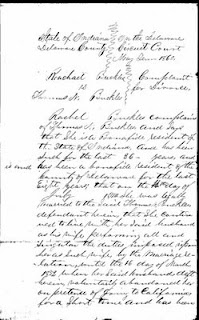 State of Indiana In the Delaware
Delaware County Circuit Court
May Term 186
Rachael Buckles Complaint
vs for Divorce
Thomas N. Buckles
Rachel Buckles complains
of Thomas N. Buckles and says
that She is a bonafide resident of
the State of Indiana and has been
such for the last 26 years and
has been a bonafide resident of the
County of Delaware for the last
Eight years that on the 16 day of
She was legally
married to the said Thomas Buckles
defendant herein that She continued
to live with her said husband
as his wife performing all and
the duties imposed upon
her as such wife by the Marriage re
lation until the 16 day of March
1852 when her said husband deft
herein voluntarily abandoned her
on pretense of going to California
for a Short time and has been